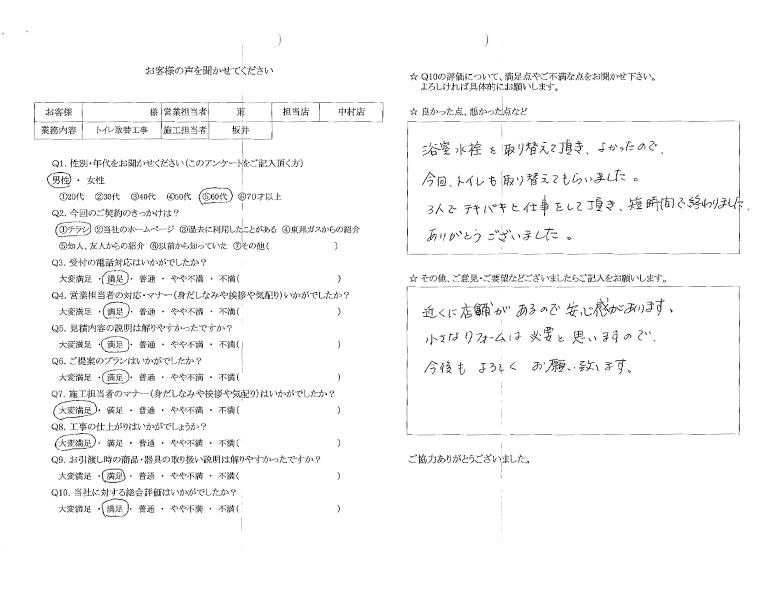 お客様の声を聞かせてください
お客様 様 営業担当者 東 担当店 中村店
業務内容 トイレ取替工事 施工担当者 坂井
Q1. 性別・年代をお聞かせください(このアンケートをご記入頂く方)
男性 ・ 女性
①20代 ②30代 ③40代 ④50代 ⑤60代 ⑥70才以上
Q2. 今回のご契約のきっかけは？
①チラシ ②当社のホームページ ③過去に利用したことがある ④東邦ガスからの紹介
⑤知人、友人からの紹介 ⑥以前から知っていた ⑦その他( )
Q3. 受付の電話対応はいかがでしたか？
大変満足 ・ 満足 ・ 普通 ・ やや不満 ・ 不満( )
Q4. 営業担当者の対応・マナー(身だしなみや挨拶や気配り)いかがでしたか？
大変満足 ・ 満足 ・ 普通 ・ やや不満 ・ 不満( )
Q5. 見積内容の説明は解りやすかったですか？
大変満足 ・ 満足 ・ 普通 ・ やや不満 ・ 不満( )
Q6. ご提案のプランはいかがでしたか？
大変満足 ・ 満足 ・ 普通 ・ やや不満 ・ 不満( )
Q7. 施工担当者のマナー(身だしなみや挨拶や気配り)はいかがでしたか？
大変満足 ・ 満足 ・ 普通 ・ やや不満 ・ 不満( )
Q8. 工事の仕上がりはいかがでしょうか？
大変満足 ・ 満足 ・ 普通 ・ やや不満 ・ 不満( )
Q9. お引渡し時の商品・器具の取り扱い説明は解りやすかったですか？
大変満足 ・ 満足 ・ 普通 ・ やや不満 ・ 不満( )
Q10. 当社に対する総合評価はいかがでしたか？
大変満足 ・ 満足 ・ 普通 ・ やや不満 ・ 不満( )
☆ Q10の評価について、満足点やご不満な点をお聞かせ下さい。
よろしければ具体的にお願いします。
☆ 良かった点、悪かった点など
浴室水栓を取り替えて頂き、よかったので、
今回、トイレも取り替えてもらいました。
3人でテキパキと仕事をして頂き、短時間で終わりました。
ありがとうございました。
☆ その他、ご意見・ご要望などございましたらご記入をお願いします。
近くに店舗があるので安心感があります。
小さなリフォームは必要と思いますので、
今後もよろしくお願い致します。
ご協力ありがとうございました。